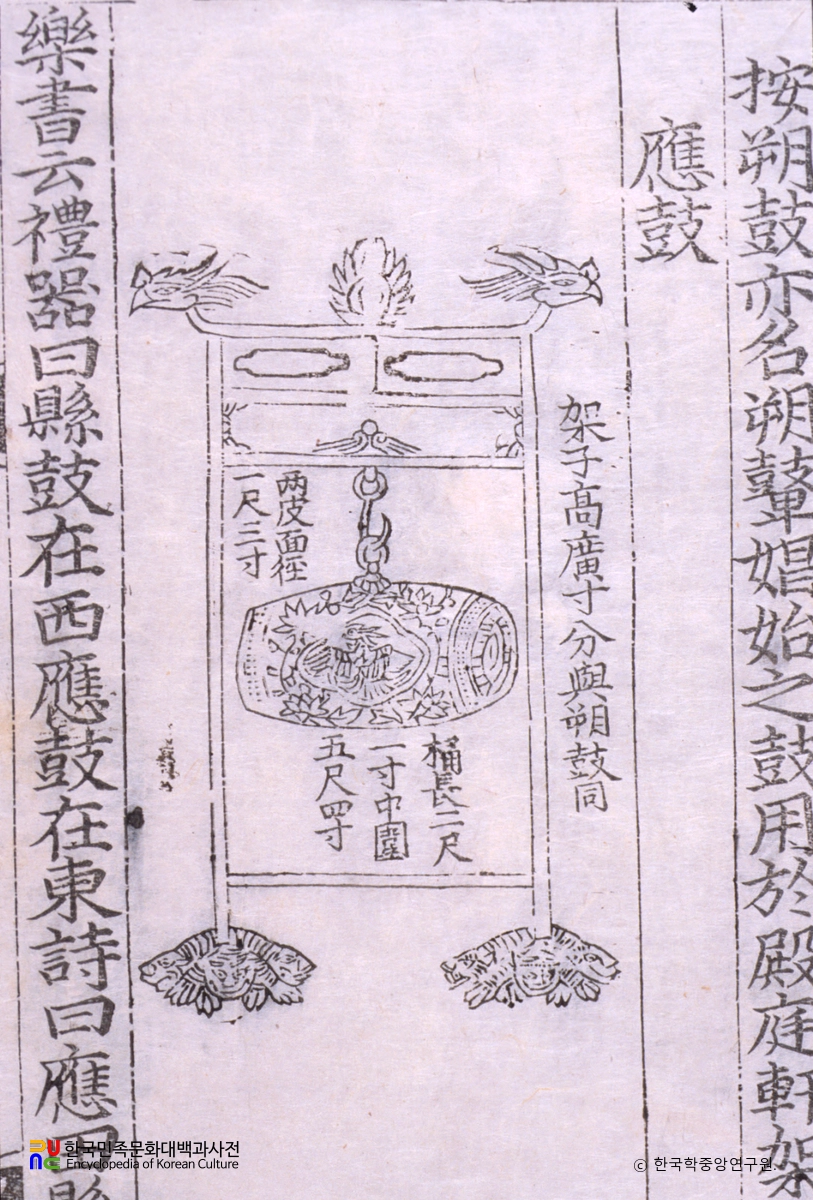 按朔鼓亦名朔鼙
始之鼓用於殿庭軒架
應鼓
架子高廣寸分與朔鼓同
两皮面徑
一尺三寸
桶長二尺
一寸中圍
五尺四寸
樂書云禮器曰縣鼓在西應鼓在東詩曰應曰縣
한국민족문화대백과사전
Encyclopedia of Korean Culture
ⓒ 한국학중앙연구원.